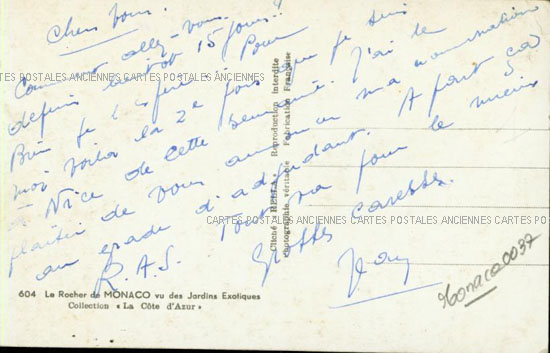 Chers Vous.
Comment allez-vous
depuis bientôt 15 jours!!
Bien je l'espère. Pour
moi voilà la 2e fois que je suis
à Nice de cette semaine. J'ai le
plaisir de vous annoncer ma nomination
au grade d'adjudant. A part ça
R.A.S. Tout va pour le mieux
Grosses caresses.
CARTES POSTALES ANCIENNES CARTES POSTALES ANCIENNES CARTES POSTALES ANCIENNES CARTES POSTALES ANCIENNES
CARTES POSTALES ANCIENNES CARTES POSTALES ANCIENNES CARTES POSTALES
Cliché RELLA Reproduction Interdite
Photographie véritable Fabrication Française
604 Le Rocher de MONACO vu des Jardins Exotiques
Collection « La Côte d'Azur »
Monaco0037